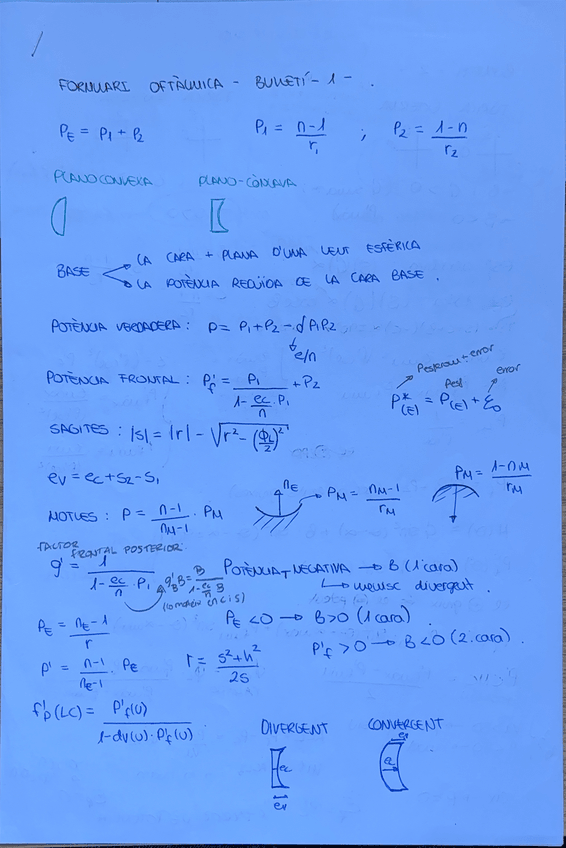 FORMULARI OFTÀLMICA - BUTLLETÍ - 1 - .
P_E = P_1 + P_2    P_1 = (n-1)/r_1 ; P_2 = (1-n)/r_2
PLANOCONVEXA    PLANO-CÒNCAVA
BASE
LA CARA + PLANA D'UNA LENT ESFÈRICA
LA POTÈNCIA REDUÏDA DE LA CARA BASE.
POTÈNCIA VERDADERA: P = P_1 + P_2 - d P_1 P_2
e/n
POTÈNCIA FRONTAL: P'_f = P_1/(1 - (e_c/n)·P_1) + P_2
error
error
P*_(E) = P_(E) + ε_0
SAGITES: |S| = |r| - √(r² - (Φ_L/2)²)
e_v = e_c + s_2 - s_1
MOTLLES: P = (n-1)/(n_M-1) · P_M
n_E    P_M = (n_M-1)/r_M    P_M = (1-n_M)/r_M
FACTOR FRONTAL POSTERIOR.
g' = 1/(1 - (e_c/n)·P_1)    g'_B B = B/(1 - (e_c/n) B)
POTÈNCIA NEGATIVA → B (1ª cara)
↳ menisc divergent.
P_E < 0 → B > 0 (1 cara)
P'_f > 0 → B < 0 (2. cara).
P_E = (n_E-1)/r
P' = (n-1)/(n_E-1) P_E    r = (s²+h²)/2s
f'_p (LC) = P'_f(U)/(1 - dv(U)·P'_f(U))
DIVERGENT    CONVERGENT
ec
ev
ev
ec